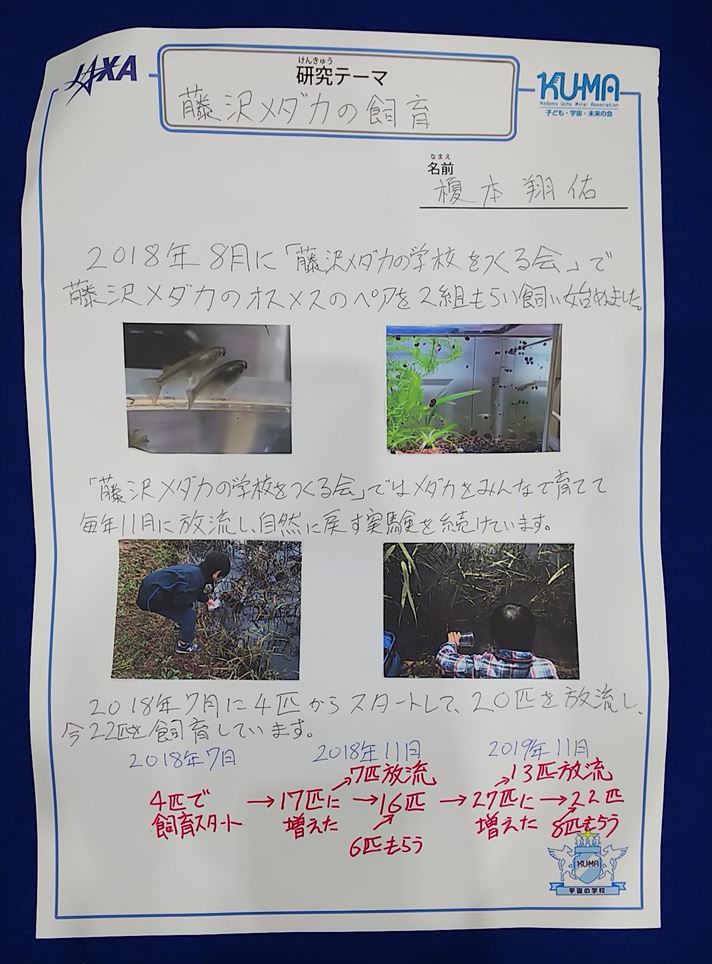 JAXA
けんきゅう
研究テーマ
藤沢メダカの飼育
KU-MA
Kodomo Uchu Mirai Association
子ども・宇宙・未来の会
なまえ
名前
榎本翔佑
2018年8月に「藤沢メダカの学校をつくる会」で
藤沢メダカのオスメスのペアを2組もらい飼い始めました。
「藤沢メダカの学校をつくる会」ではメダカをみんなで育てて
毎年11月に放流し、自然に戻す実験を続けています。
2018年7月に4匹からスタートして、20匹を放流し、
今22匹を飼育しています。
2018年7月 2018年11月 2019年11月
→7匹放流 →13匹放流
4匹で →17匹に →16匹 →27匹に →22匹
飼育スタート 増えた 増えた 8匹もらう
6匹もらう
KU-MA
宇宙の学校